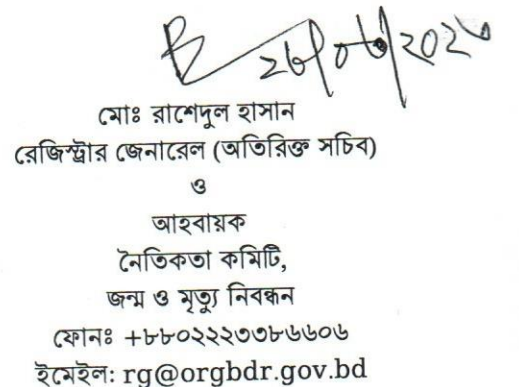 ২৬/০৬/২০২৩
মোঃ রাশেদুল হাসান
রেজিস্ট্রার জেনারেল (অতিরিক্ত সচিব)
ও
আহবায়ক
নৈতিকতা কমিটি,
জন্ম ও মৃত্যু নিবন্ধন
ফোনঃ +৮৮০২২২৩৩৮৬৬০৬
ইমেইল: rg@orgbdr.gov.bd